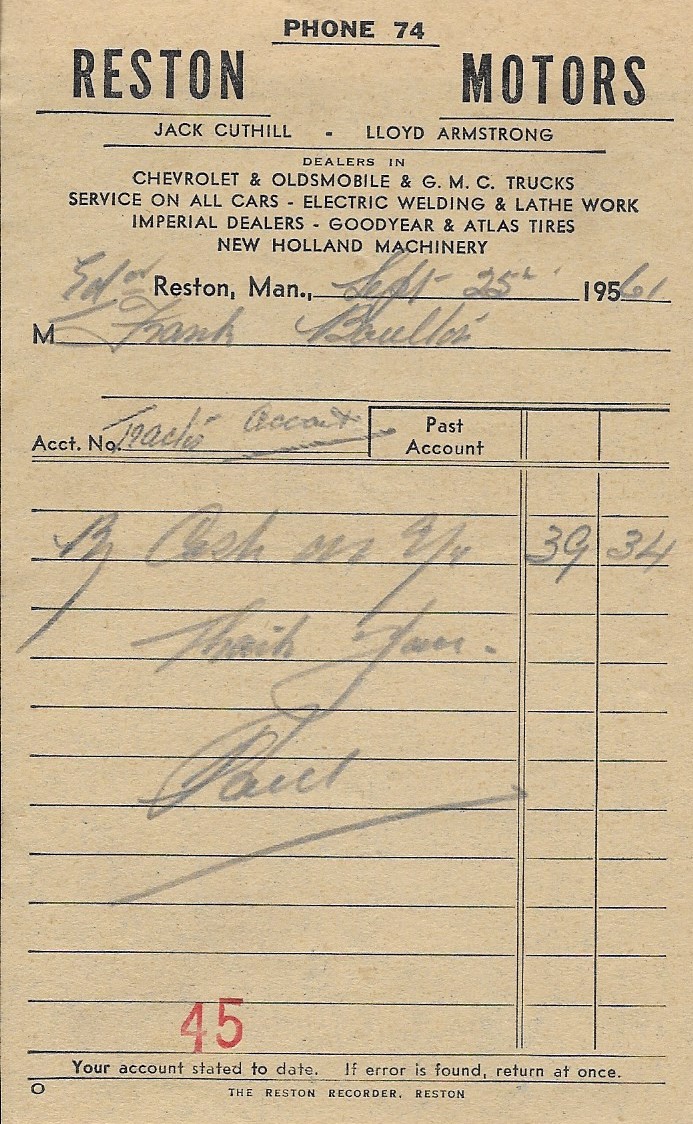 PHONE 74
RESTON MOTORS
JACK CUTHILL - LLOYD ARMSTRONG
DEALERS IN
CHEVROLET & OLDSMOBILE & G. M. C. TRUCKS
SERVICE ON ALL CARS - ELECTRIC WELDING & LATHE WORK
IMPERIAL DEALERS - GOODYEAR & ATLAS TIRES
NEW HOLLAND MACHINERY
Ed or
Reston, Man., Sept 25 195 61
M Frank
Acct. No. Tractor Account
Past Account
By Cash on 39 34
Thank You.
Paid
45
Your account stated to date. If error is found, return at once.
O THE RESTON RECORDER, RESTON